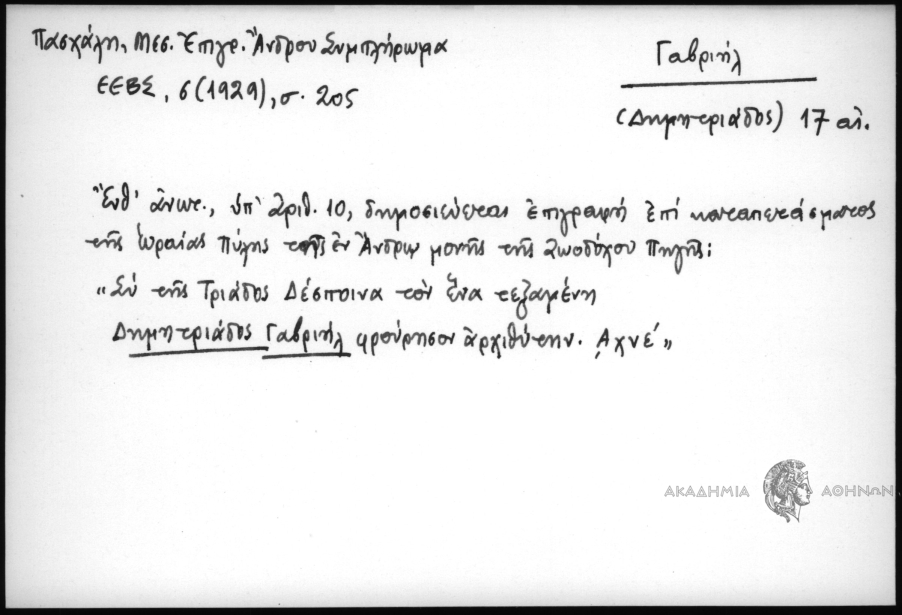 Πασχάλη, Μεσ. Ἐπιγρ. Ἄνδρου Συμπλήρωμα
ΕΕΒΣ, 6 (1929), σ. 205
Γαβριήλ
(Δημητριάδος) 17 αἰ.
Ἔνθ' ἀνωτ., ὑπ' ἀριθ. 10, δημοσιεύεται ἐπιγραφή ἐπί καταπετάσματος
τῆς Ὡραίας Πύλης τῆς ἐν Ἄνδρῳ μονῆς τῆς Ζωοδόχου Πηγῆς:
"Σύ τῆς Τριάδος Δέσποινα τὸν ἕνα τεξαμένη
Δημητριάδος Γαβριήλ φρούρησον ἀρχιθύτην. ͵Αχνέ"
ΑΚΑΔΗΜΙΑ ΑΘΗΝΩΝ